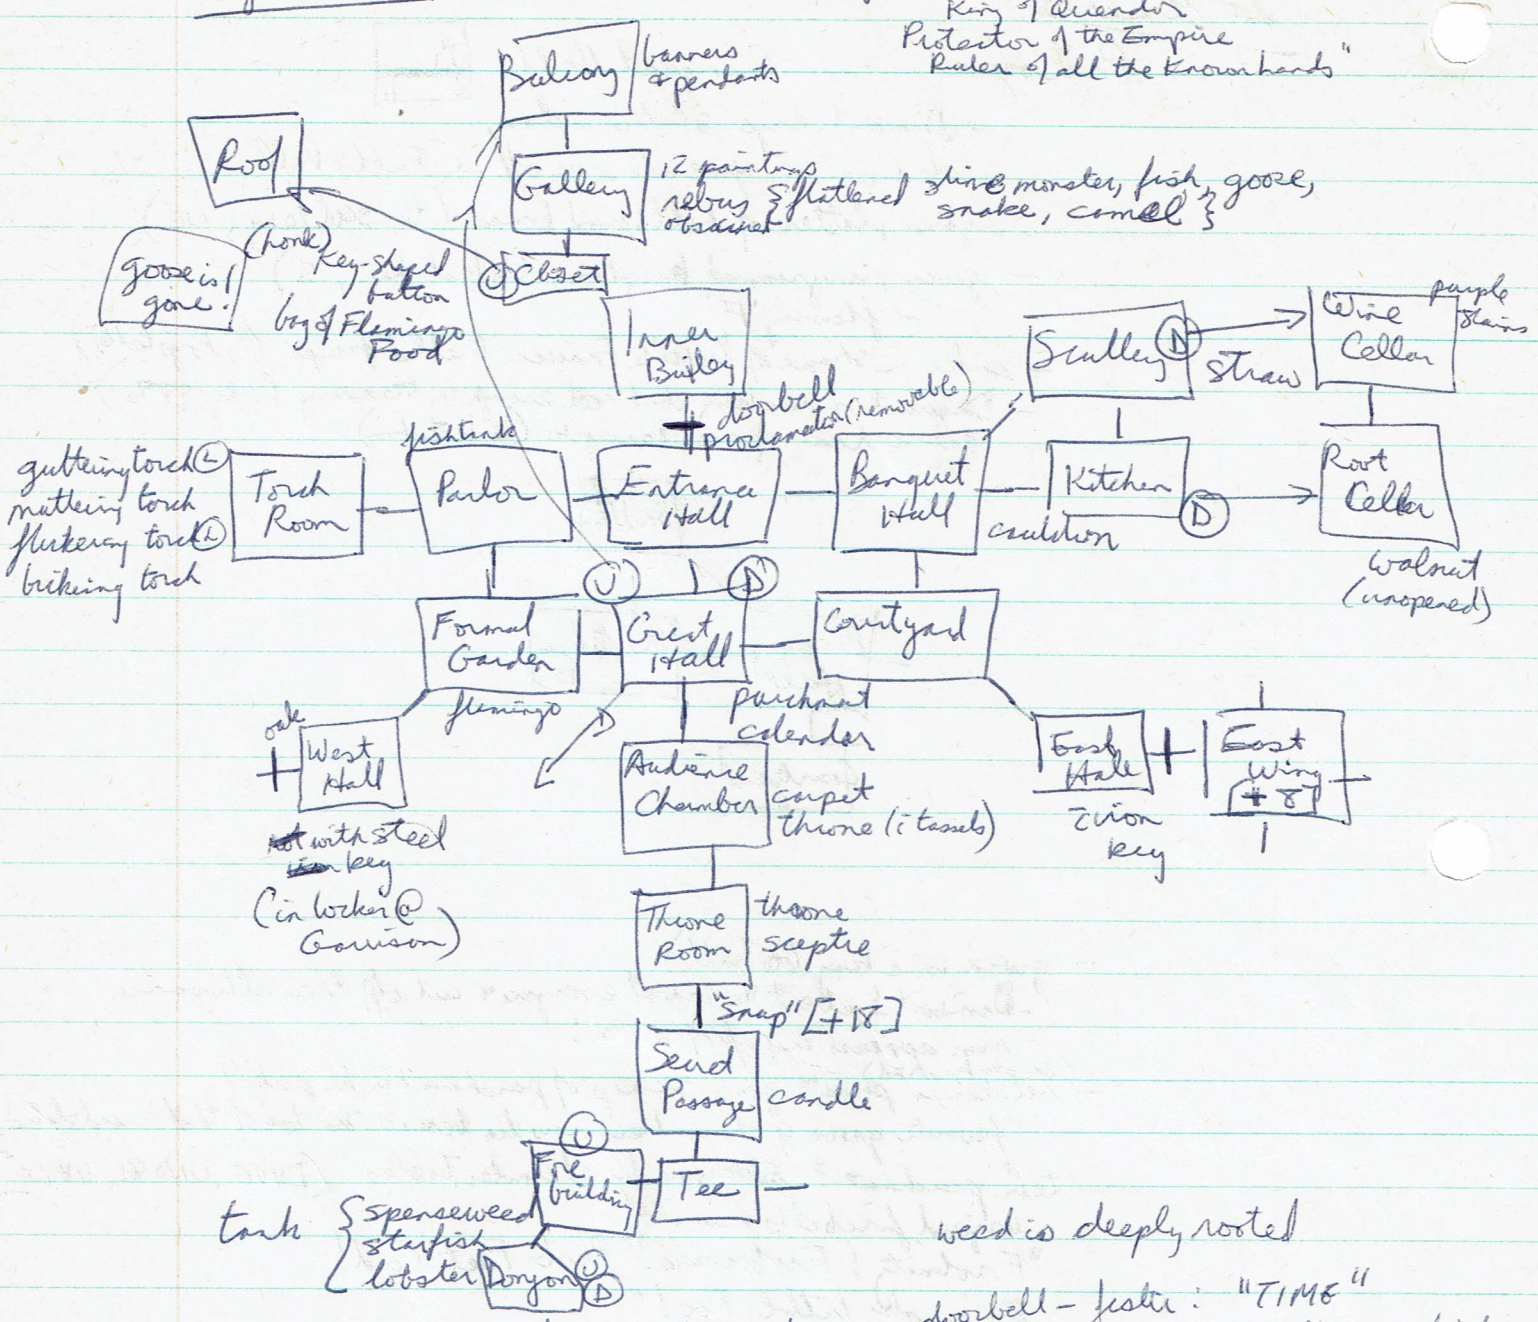 King of Quendor
Protector of the Empire
Ruler of all the Known Lands"
Balcony
banners
& pendants
Roof
Gallery
12 paintings
rebus {flattened slime monster, fish, goose,
snake, camel}
obscured
(honk)
goose is
gone!
key-shaped
button
bag of Flamingo
Food
U Closet
Inner
Bailey
doorbell
proclamation (removable)
Scullery D
straw
Wine
Cellar
purple
stains
guttering torch L
muttering torch
flickering torch L
bickering torch
Torch
Room
fishtank
Parlor
Entrance
Hall
Banquet
Hall
cauldron
Kitchen
D
Root
Cellar
walnut
(unopened)
Formal
Garden
flamingo
U
D
Great
Hall
parchment
calendar
Courtyard
oak
West
Hall
with steel
key
(in locker @
Garrison)
D
Audience
Chamber
carpet
throne (c tassels)
East
Hall
c iron
key
East
Wing
+ 8
Throne
Room
throne
sceptre
"Snap" [+18]
Secret
Passage
candle
U
Fire
building
Tee
tank { spenseweed
starfish
lobster
Donjon
U
D
weed is deeply rooted
doorbell – fester: "TIME"